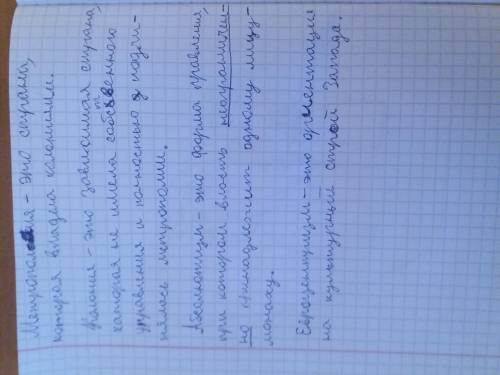 Метрополия - это страны,
которая владела колониями.
Колония - это зависимая страна,
которая не имела собственного
управления и полностью подчи-
нялась метрополии.
Абсолютизм - это форма правления,
при котором власть неограничен-
но принадлежит одному лицу-
монаху.
Евроцентризм - это ориентация
на культурный строй Запада.